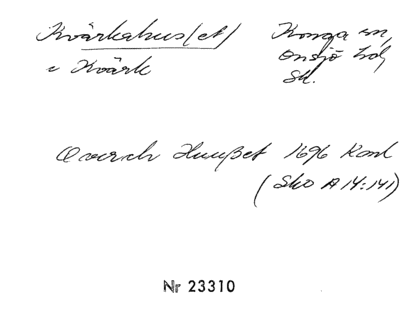 Kvärkahus(et)
i Kvärk
Konga sn,
Onsjö hd,
Sk.
Quarch Huußet 1696 Kard
(Sko A 14:141)
Nr 23310